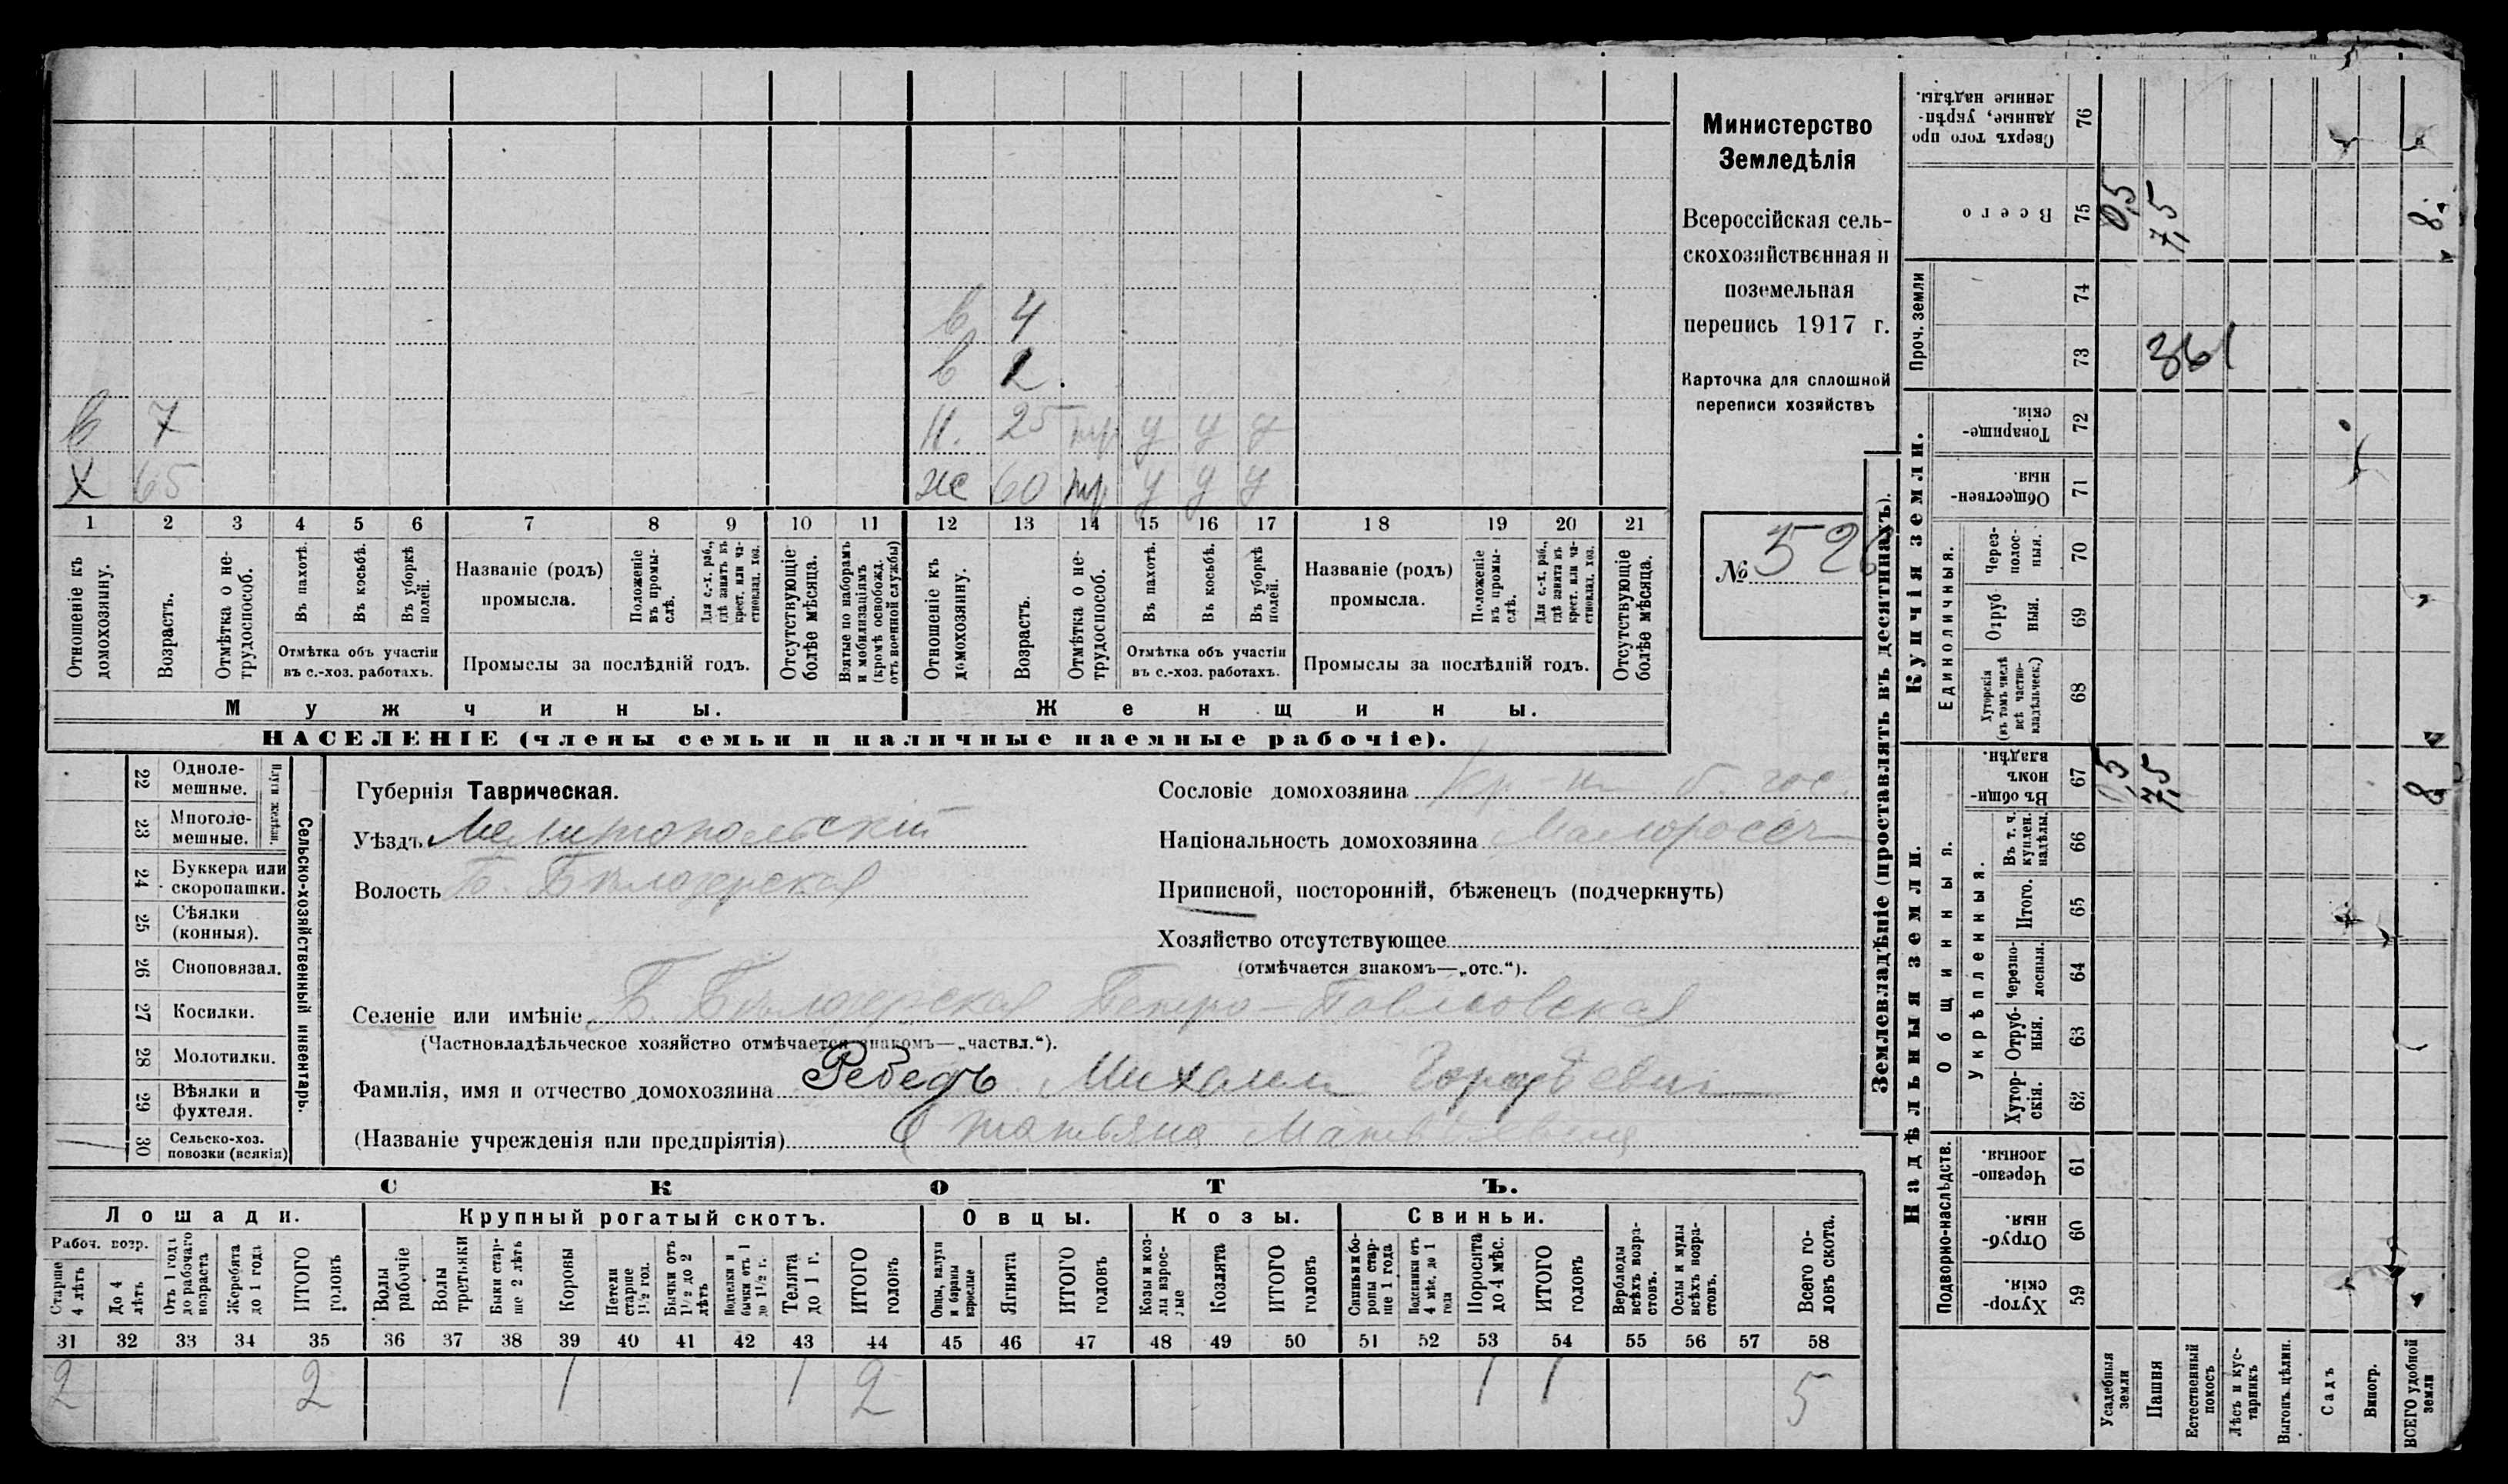 в 4
в 2.
в 7 н. 25 тр у у у
х 65 ж 60 тр у у у
1 2 3 4 5 6 7 8 9 10 11 12 13 14 15 16 17 18 19 20 21
Отношеніе къ домохозяину.
Возрастъ.
Отмѣтка о не-трудоспособ.
Въ пахотѣ.
Въ косьбѣ.
Въ уборкѣ полей.
Отмѣтка объ участіи
въ с.-хоз. работахъ.
Названіе (родъ)
промысла.
Положеніе въ промы-слѣ.
Для с.-х. раб., гдѣ занятъ въ крест. или ча-стновлад. хоз.
Промыслы за послѣдній годъ.
Отсутствующіе болѣе мѣсяца.
Взятые по наборамъ и мобилизаціямъ (кромѣ освобожд. отъ военной службы)
Отношеніе къ домохозяину.
Возрастъ.
Отмѣтка о не-трудоспособ.
Въ пахотѣ.
Въ косьбѣ.
Въ уборкѣ полей.
Отмѣтка объ участіи
въ с.-хоз. работахъ.
Названіе (родъ)
промысла.
Положеніе въ промы-слѣ.
Для с.-х. раб., гдѣ занята въ крест. или ча-стновлад. хоз.
Промыслы за послѣдній годъ.
Отсутствующіе болѣе мѣсяца.
Мужчины. Женщины.
НАСЕЛЕНІЕ (члены семьи и наличные наемные рабочіе).
Министерство
Земледѣлія
Всероссійская сель-
скохозяйственная и
поземельная
перепись 1917 г.
Карточка для сплошной
переписи хозяйствъ
№ 526
22 Одноле-мешные.
23 Многоле-мешные.
Плуги желѣзн.
24 Буккера или скоропашки.
25 Сѣялки (конныя).
26 Сноповязал.
27 Косилки.
28 Молотилки.
29 Вѣялки и фухтеля.
1 30 Сельско-хоз. повозки (всякія)
Сельско-хозяйственный инвентарь.
Губернія Таврическая.
Уѣздъ Мелитопольскій
Волость Б. Бѣлозерская
Сословіе домохозяина Кр-н б. гос.
Національность домохозяина Малоросс
Приписной, посторонній, бѣженецъ (подчеркнуть)
Хозяйство отсутствующее
(отмѣчается знакомъ—„отс.“).
Селеніе или имѣніе Б. Бѣлозерская Петро-Павловская
(Частновладѣльческое хозяйство отмѣчается знакомъ—„частвл.“).
Фамилія, имя и отчество домохозяина Ребедъ Михаилъ
(Названіе учрежденія или предпріятія) (Татьяна Матвѣевна
СКОТЪ.
Лошади. Крупный рогатый скотъ. Овцы. Козы. Свиньи.
Рабоч. возр.
Старше 4 лѣтъ
До 4 лѣтъ
Отъ 1 года до рабочаго возраста
Жеребята до 1 года
ИТОГО головъ
Волы рабочіе
Волы третьяки
Быки стар-ше 2 лѣтъ
Коровы
Нетели старше 1½ год.
Бычки отъ 1½ до 2 лѣтъ
Подтелки и бычки отъ 1 до 1½ г.
Телята до 1 г.
ИТОГО головъ
Овцы, валухи и бараны взрослые
Ягнята
ИТОГО головъ
Козы и коз-лы взрос-лые
Козлята
ИТОГО головъ
Свиньи и бо-ровы стар-ше 1 года
Подсвинки отъ 4 мѣс. до 1 года
Поросята до 4 мѣс.
ИТОГО головъ
Верблюды всѣхъ возра-стовъ.
Ослы и мулы всѣхъ возра-стовъ.
Всего го-ловъ скота.
31 32 33 34 35 36 37 38 39 40 41 42 43 44 45 46 47 48 49 50 51 52 53 54 55 56 57 58
2 2 1 1 2 1 1 5
Землевладѣніе (проставлять въ десятинахъ).
Надѣльныя земли.
Подворно-наслѣдств.
Хутор-скія. 59
Отруб-ныя. 60
Черезпо-лосныя. 61
Общинныя.
Укрѣпленныя.
Хутор-скія. 62
Отруб-ныя. 63
Черезпо-лосныя. 64
Итого. 65
Въ т. ч. куплен. надѣлы. 66
Въ общи-номъ владѣн. 67 0,5 7,5 8,
Купчія земли.
Единоличныя.
Хуторскія (въ томъ числѣ всѣ частно-владѣльческ.) 68
Отруб-ныя. 69
Через-полос-ныя. 70
Обществен-ныя. 71
Товарище-скія. 72
Проч. земли
73 74
361
Всего 75 0,5 7,5 8.
Сверхъ того про-данные, укрѣп-ленные надѣлы. 76
Усадебныя земли
Пашня
Естественный покосъ
Лѣсъ и кус-тарникъ
Выгонъ, цѣлин.
Садъ
Виногр.
ВСЕГО удобной земли